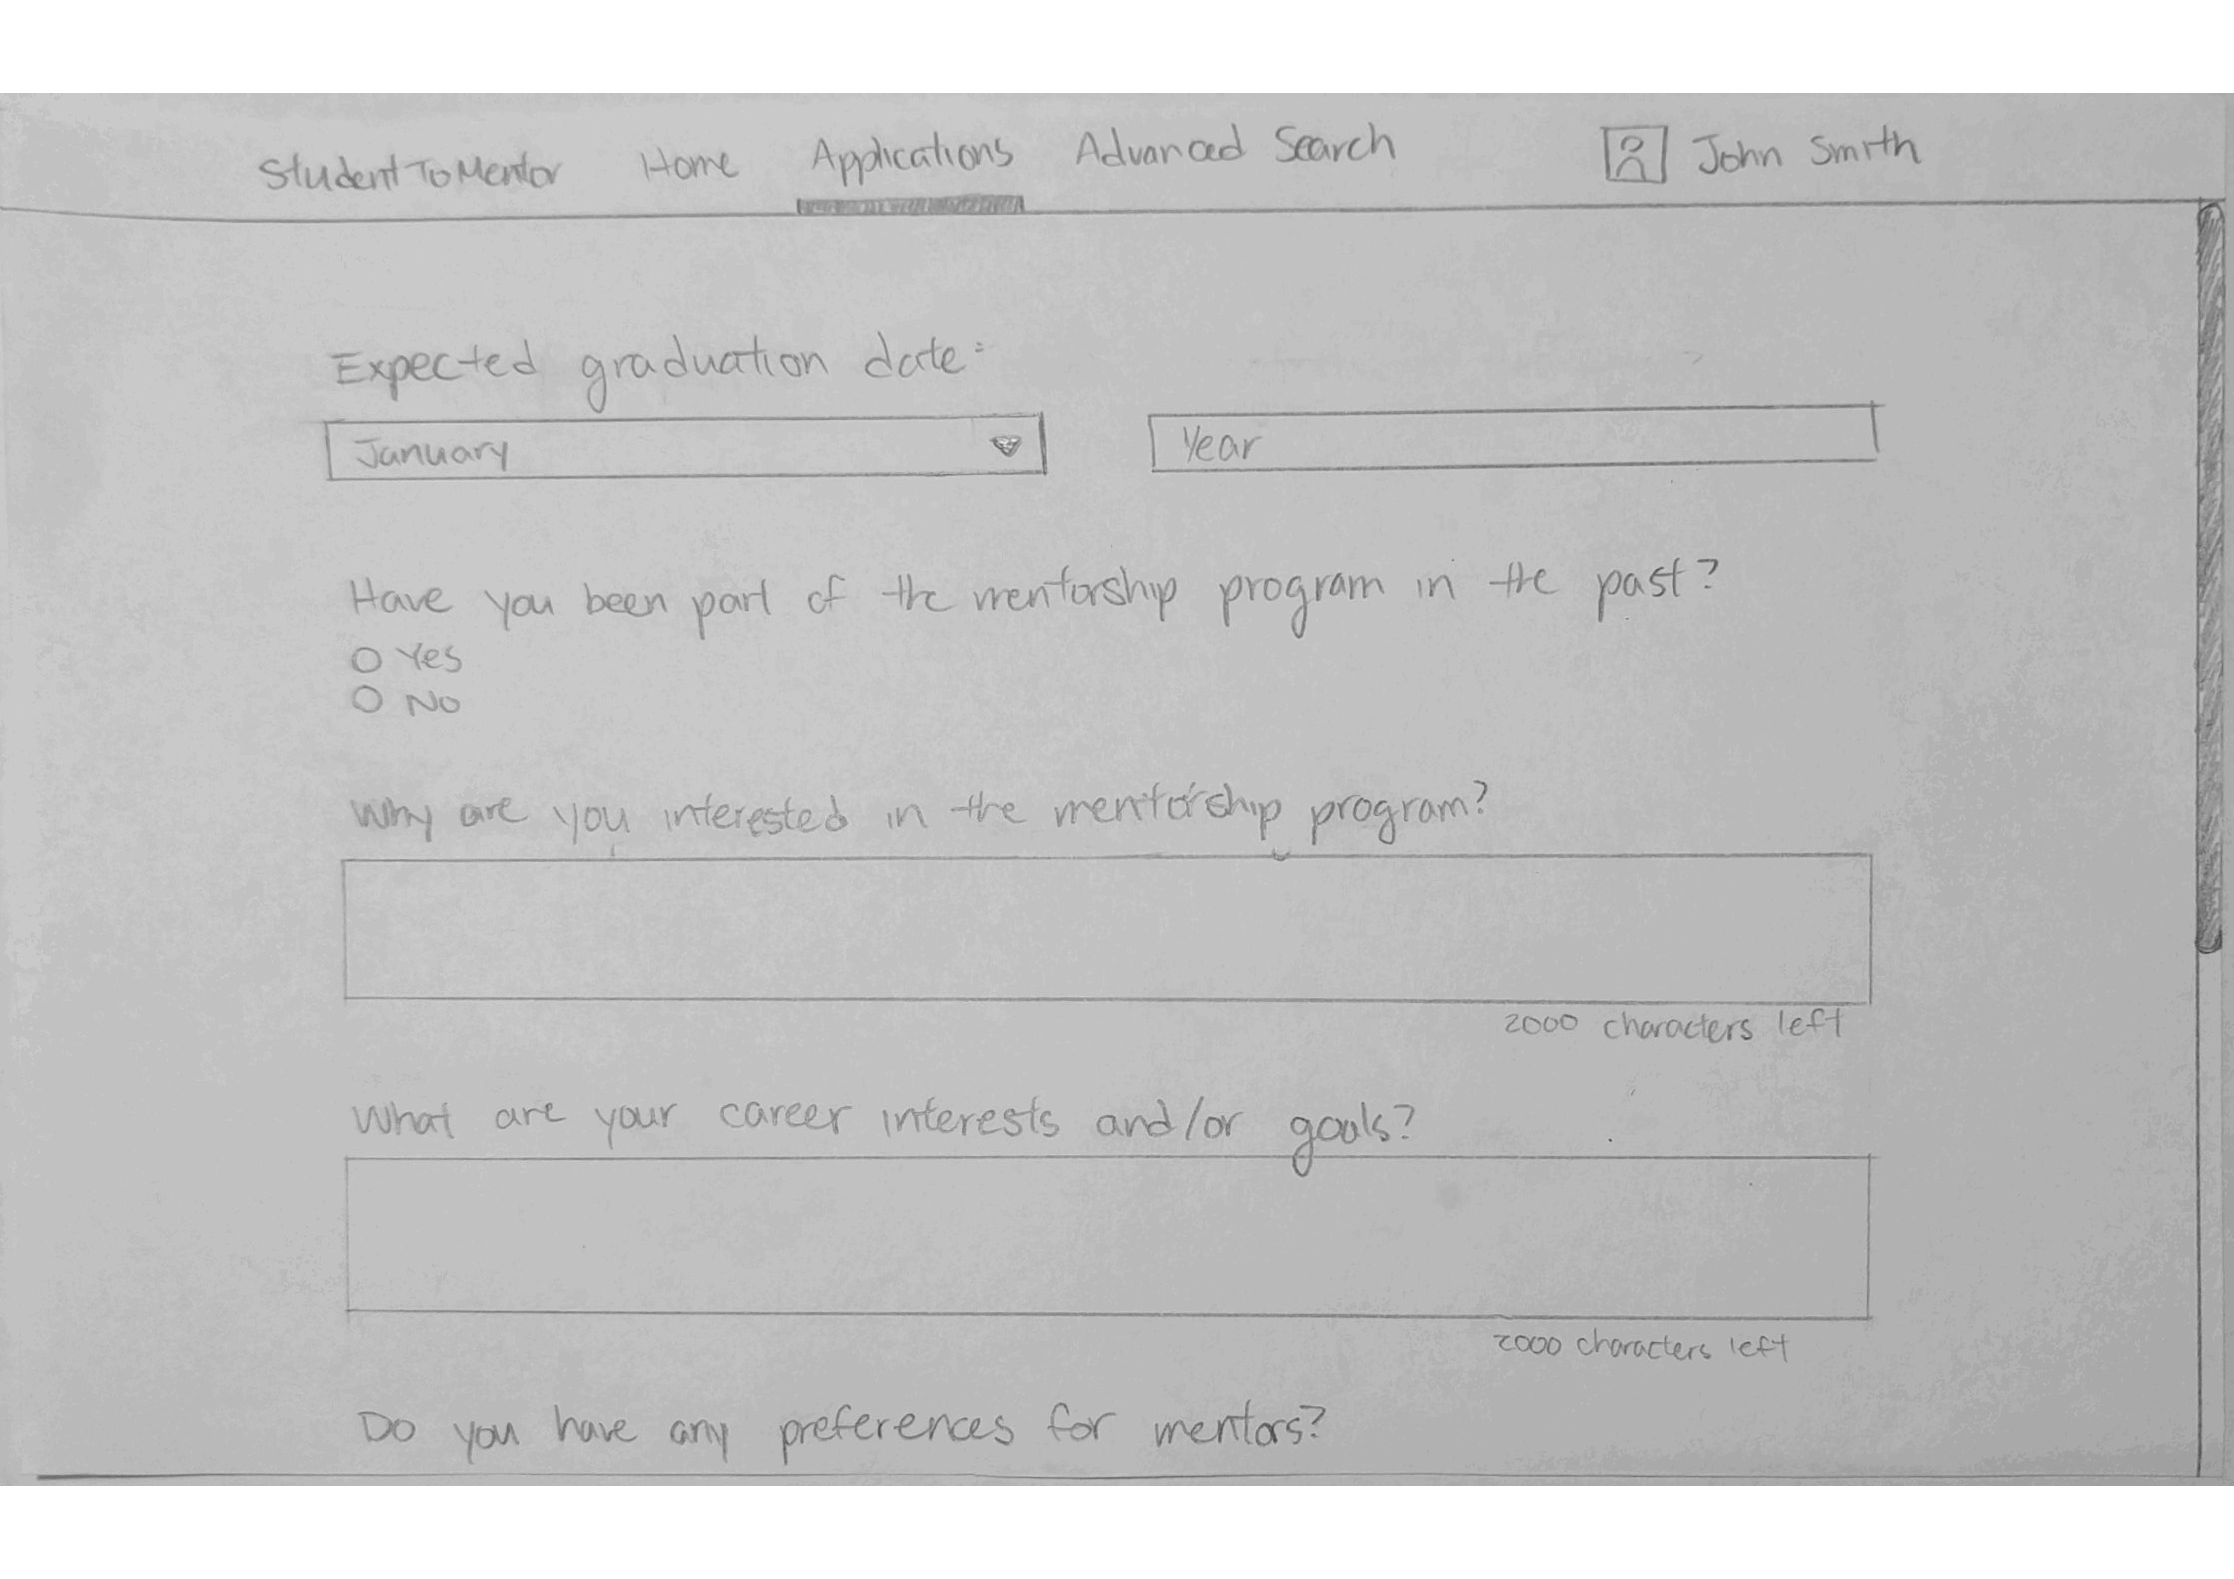 StudentToMentor Home Applications Advanced Search John Smith
Expected graduation date:
January Year
Have you been part of the mentorship program in the past?
Yes
No
Why are you interested in the mentorship program?
2000 characters left
What are your career interests and/or goals?
2000 characters left
Do you have any preferences for mentors?